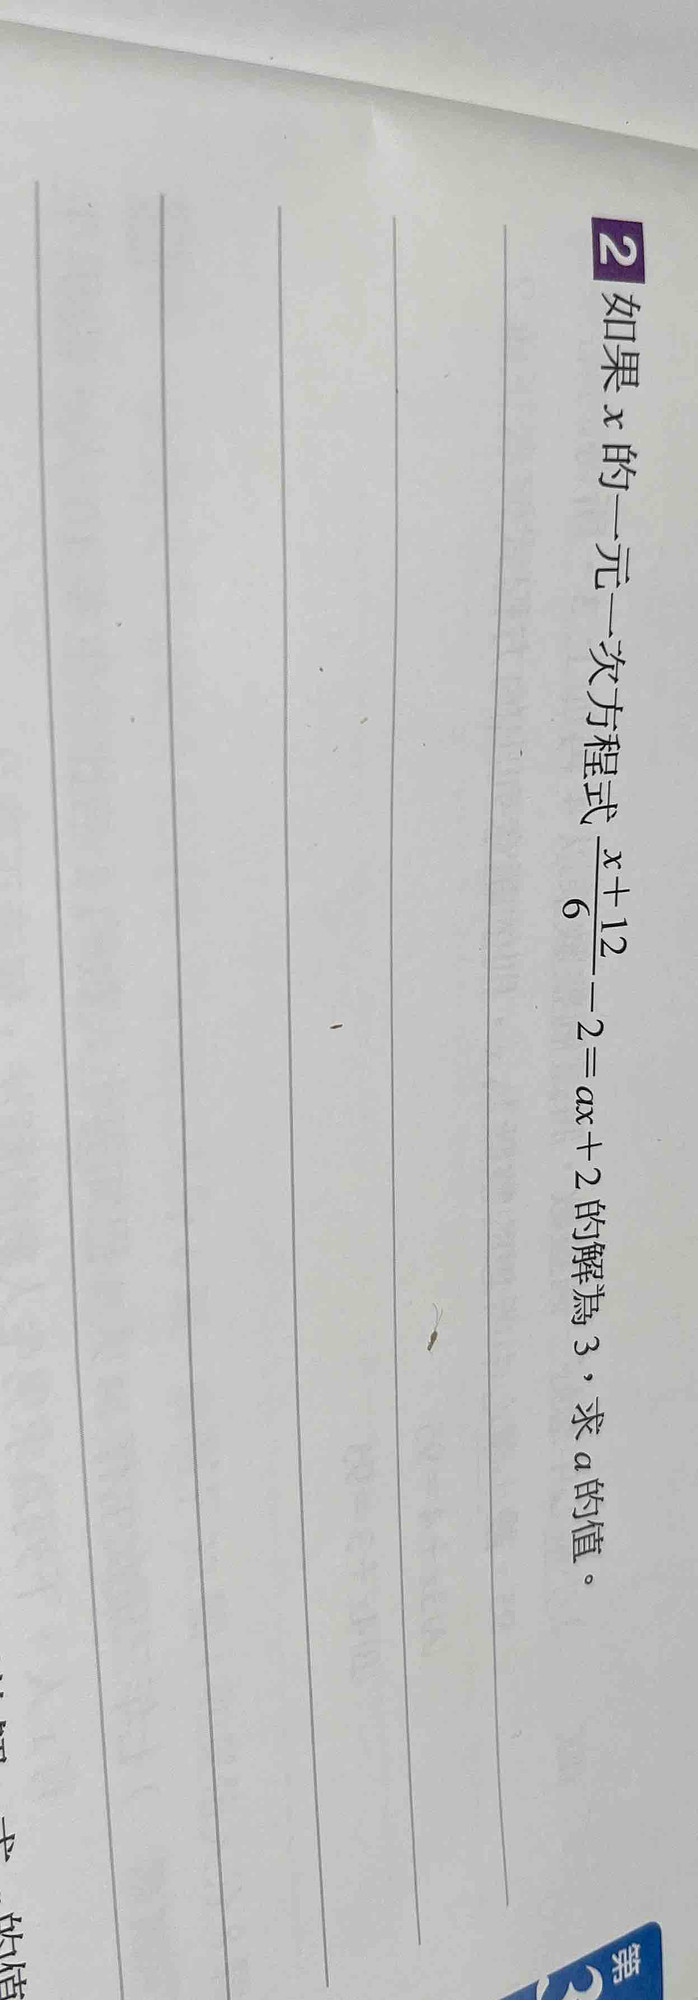 2 如果 x 的一元一次方程式 \frac{x+12}{6}-2=ax+2 的解為 3，求 a 的值。
的值
第
3